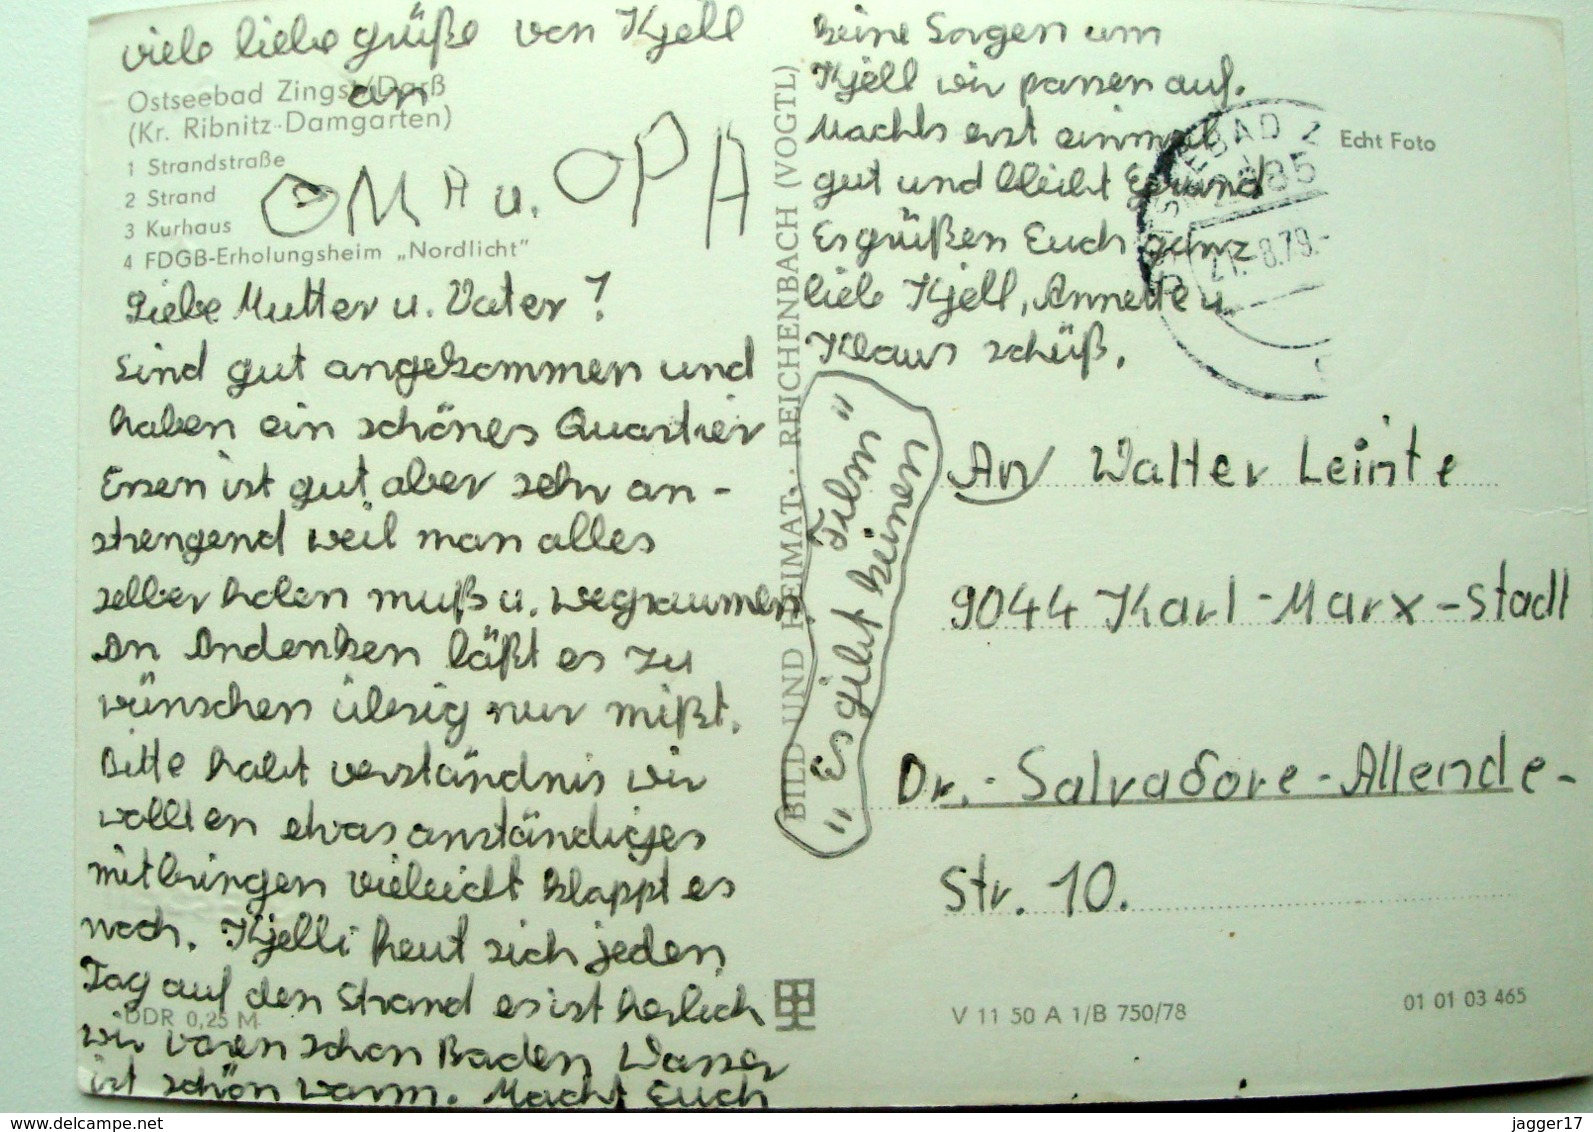 viele liebe grüße von Kjell
an
Ostseebad Zingst/Darß
(Kr. Ribnitz-Damgarten)
1 Strandstraße
2 Strand
3 Kurhaus
4 FDGB-Erholungsheim „Nordlicht“
OMA u. OPA
Liebe Mutter u. Vater!
Sind gut angekommen und
haben ein schönes Quartier
Essen ist gut, aber sehr an-
strengend weil man alles
selber holen muß u. wegräumen.
An Andenken läßt es zu
wünschen übrig nur mißt.
Bitte habt verständnis wir
wollten etwas anständiges
mitbringen vieleicht klappt es
noch. Kjelli heut sich jeden
Tag auf den Strand es ist herlich
wir waren schon Baden Wasser
ist schön warm. Macht Euch
DDR 0,25 M
keine Sorgen um
Kjell wir passen auf.
Machts erst einmal
gut und bleibt Gesund
Es grüßen Euch ganz
lieb Kjell, Annette u.
Klaus schüß.
"Es gibt keinen
Film"
BILD UND HEIMAT · REICHENBACH (VOGTL)
Echt Foto
OSTSEEBAD Z
2385
21.-8.79.-
An Walter Leinte
9044 Karl-Marx-Stadt
Dr.-Salvadore-Allende-
Str. 10.
V 11 50 A 1/B 750/78
01 01 03 465
www.delcampe.net
jagger17